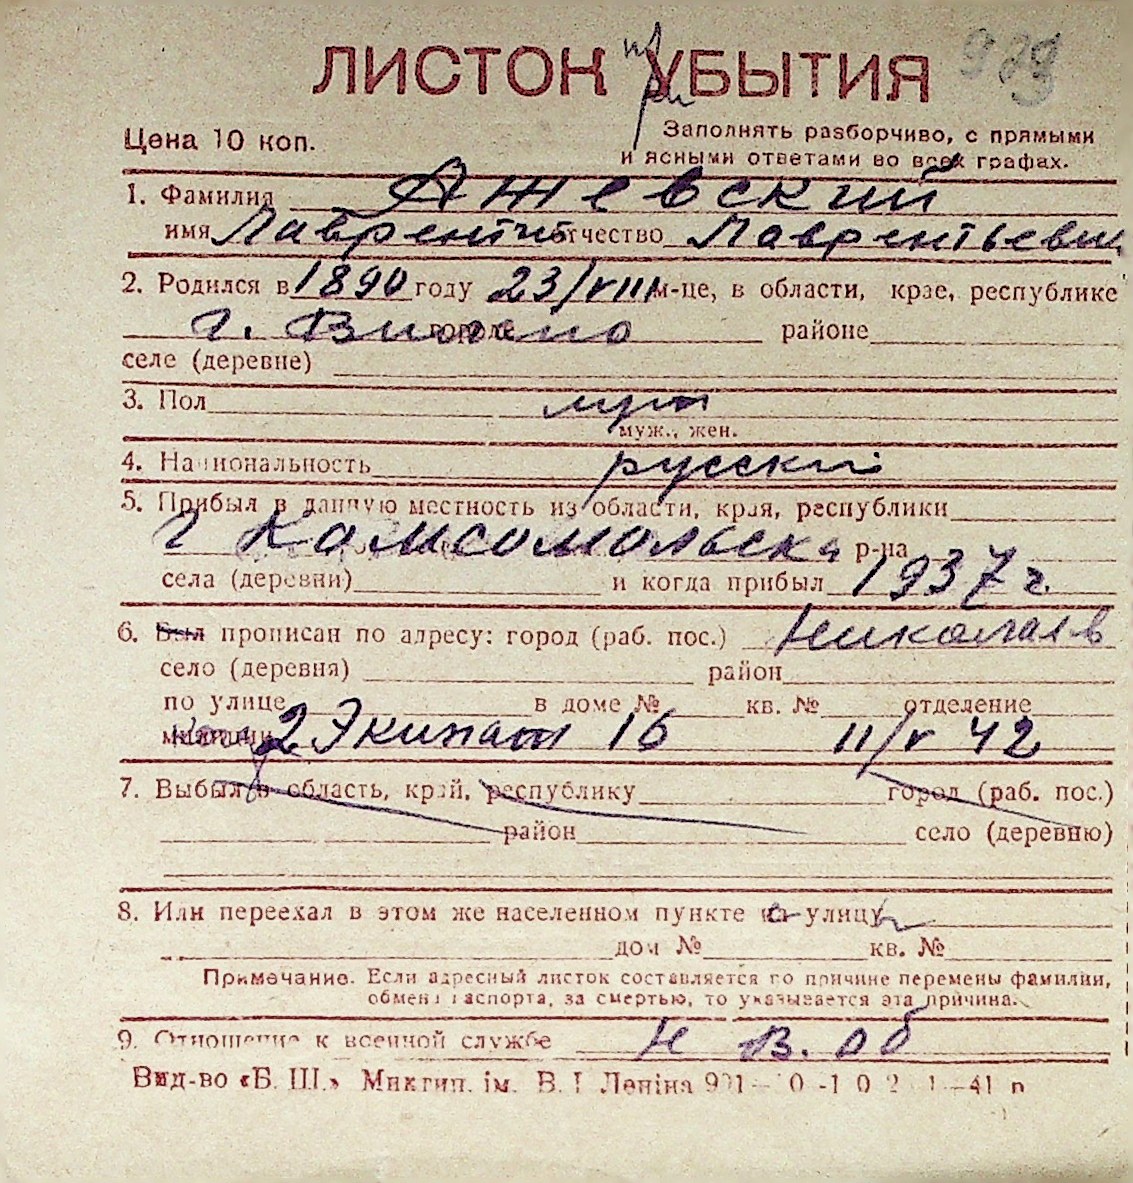 ЛИСТОК УБЫТИЯ при 929
Цена 10 коп.
Заполнять разборчиво, с прямыми
и ясными ответами во всех графах.
1. Фамилия Ажевский
имя Лаврентий отчество Лаврентьевич
2. Родился в 1890 году 23/VIII м-це, в области, крае, республике
г. Вильно городе районе
селе (деревне)
3. Пол муж
муж., жен.
4. Национальность русский
5. Прибыл в данную местность из области, края, республики
г Комсомольска р-на
села (деревни) и когда прибыл 1937 г.
6. Был прописан по адресу: город (раб. пос.) Николаев
село (деревня) район
по улице в доме № кв. № отделение
милиции 2 Экипаж 16 11/V 42
7. Выбыл в область, край, республику город (раб. пос.)
район село (деревню)
8. Или переехал в этом же населенном пункте на улицу
дом № кв. №
Примечание. Если адресный листок составляется по причине перемены фамилии,
обмена паспорта, за смертью, то указывается эта причина.
9. Отношение к военной службе Н В. об
Вид-во «Б. Ш.» Микгип. ім. В. І Леніна